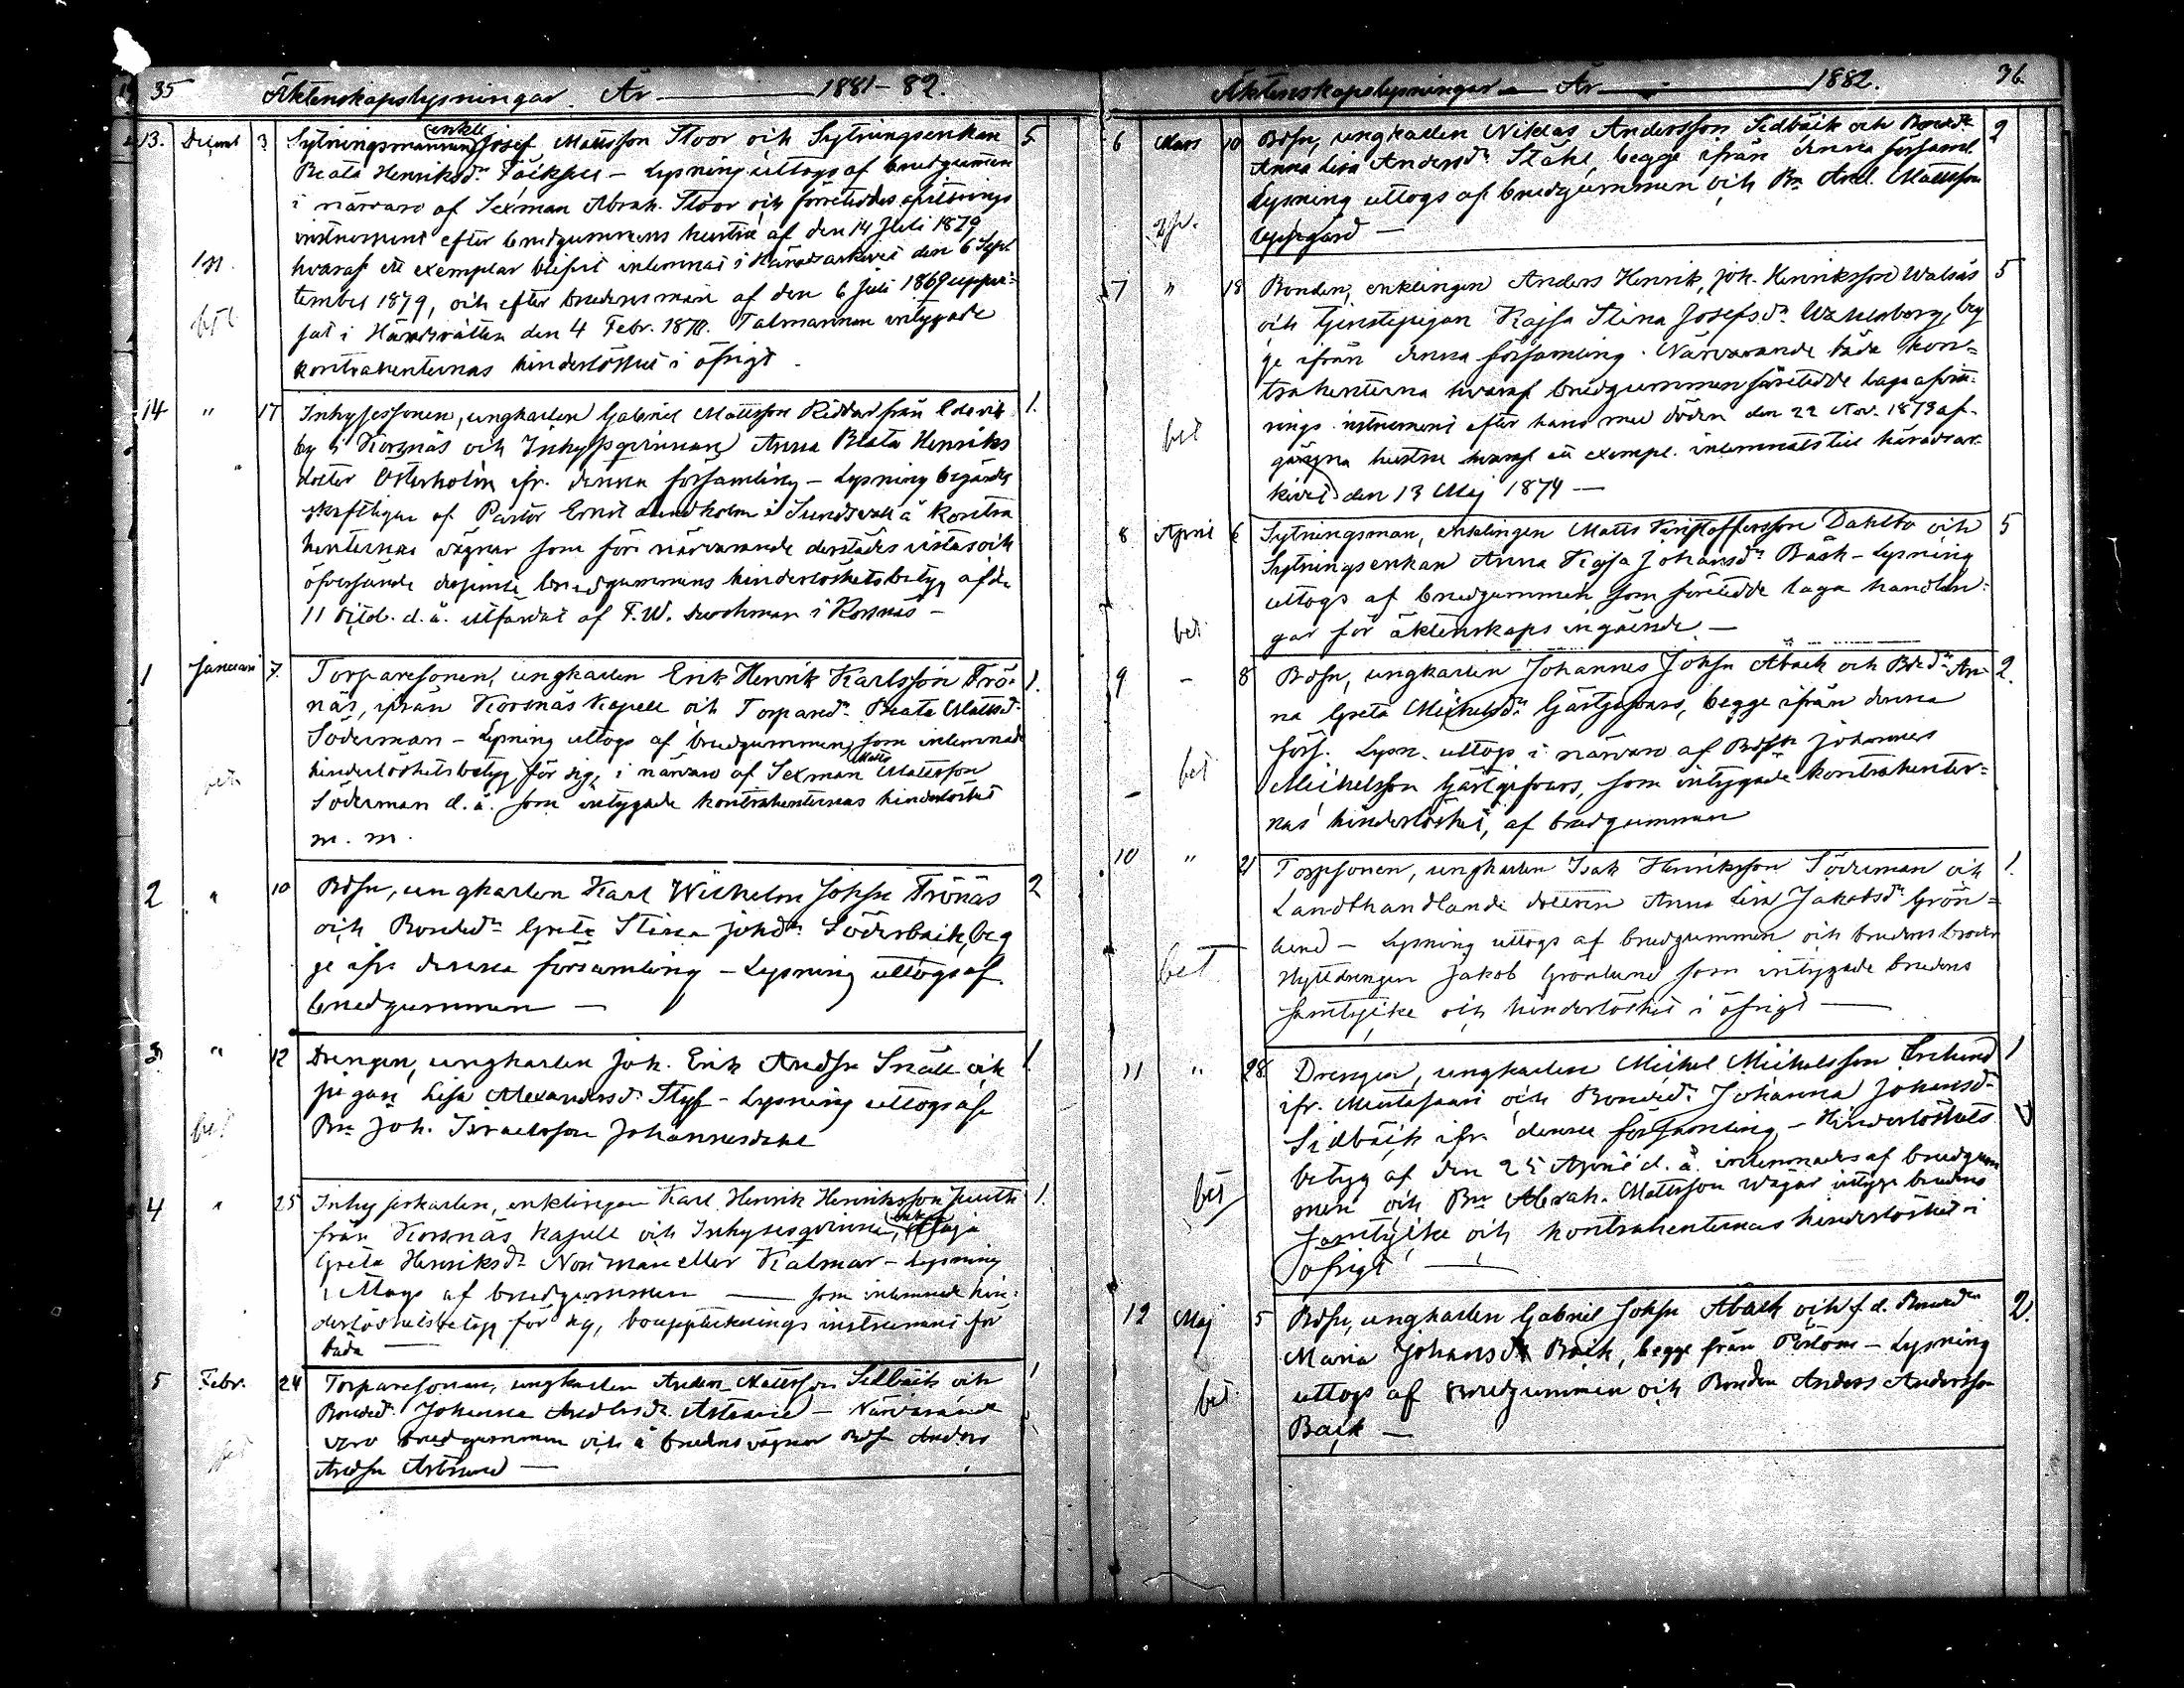 35 Äktenskapslysningar. År 1881-82.
13. Decemb 3 Sytningsmannen enkl. Josef Mattsson Stoor och Sytningsenkan 5
Beata Henriksdr – Lysning uttogs af brudgummen
i närvaro af Sexman Abrah. Stoor och företeddes afvittrings
instrument efter brudgummens hustru af den 14 Juli 1879
hvaraf ett exemplar blifvit inlemnat i Häradsarkivet den 6 Sep
tember 1879, och efter brudens man af den 6 Juli 1869 uppvi-
sat i Häradsrätten den 4 Febr. 1870. Talmannen intygade
kontrahenternas hinderlöshet i öfrigt.
bet
14 " 17 Inhysessonen, ungkarlen Gabriel Mattsson Riddar från 1.
by i Korsnäs och Inhysesqvinnan Anna Beata Henriks
dotter Österholm ifr. denna församling – Lysning begärdes
skriftligen af Pastor Ernst Lindholm i Sundsvall å kontra
henternas vägnar som för närvarande derstädes vistas och
öfversände brudgummens hinderlöshetsbetyg af den
11 d. å. utfärdat af F. W. i Korsnäs –
1 Januari 7. Torparesonen, ungkarlen Erik Henrik Karlsson Trö- 1.
näs, ifrån Korsnäs Kapell och Torparedr Beata Mattsdr
Söderman – Lysning uttogs af brudgummen, som inlemnade
hinderlöshetsbetyg för sig, i närvaro af Sexman Matts Mattsson
Söderman d. ä. som intygade kontrahenternas hinderlöshet
m. m.
bet
2 " 10 Bdsn, ungkarlen Karl Wilhelm Johsn Trönäs 2
och Bondedr Greta Stina Johdr Söderback, beg
ge ifr. denna församling – Lysning uttogs af
brudgummen –
3 " 12 Drengen, ungkarlen Joh. Erik Andsn Snåll och 1
pigan Lisa Alexandersdr Styf – Lysning uttogs af
Bn Joh. Israelsson Johannesdahl
bet
4 " 25 Inhyseskarlen, enklingen Karl Henrik Henriksson Juuth 1.
från Korsnäs Kapell och Inhysesqvinnan, enkan Maja
Greta Henriksdr Norrman eller Kalmar – Lysning
uttogs af brudgummen – som inlemnade hin-
derlöshetsbetyg för sig, bouppteckningsinstrument för
båda –
5 Febr. 24 Torparesonen, ungkarlen Anders Mattsson Sidbäck och 1
Bondedr Johanna Andersdr – Närvarande
voro brudgummen och å brudens vägnar Bdsn Anders
Andsn –
bet
Äktenskapslysningar – År 1882. 36
6 Mars 10 Bdsn, ungkarlen Niklas Andersson Sidbäck och Bondedr 2
Anna Lisa Andersdr Ståhl, begge ifrån denna församl.
Lysning uttogs af brudgummen och Bn And. Mattsson
Uppgård –
7 " 18 Bonden, enklingen Anders Henrik, Joh. Henriksson Walsäs 5
och tjenstepigan Kajsa Stina Josefsdr Wakerberg, beg
ge ifrån denna församling. Närvarande båda kon-
trahenterna hvaraf brudgummen företedde laga afvitt-
rings instrument efter hans med döden den 22 Nov. 1873 af-
gångna hustru hvaraf ett exempl. inlemnats till häradsar-
kivet den 13 Maj 1874 –
bet
8 April 6 Sytningsman, enklingen Matts Kristoffersson Dahlbo och 5
Sytningsenkan Anna Kajsa Johansdr Bäck – Lysning
uttogs af brudgummen som företedde laga handlin-
gar för äktenskaps ingående –
bet
9 – 8 Bdsn, ungkarlen Johannes Johsn Åback och Bdedr An- 2.
na Greta Michelsdr Gästgifvars, begge ifrån denna
förs. Lysn. uttogs i närvaro af Bdsn Johannes
Michelsson Gästgifvars, som intygade kontrahenter-
nas hinderlöshet, af brudgummen
bet
10 " 21 Torpsonen, ungkarlen Isak Henriksson Söderman och 1.
Landthandlande dottren Anna Lisa Jakobsdr Grön-
lund – Lysning uttogs af brudgummen och brudens broder
Jakob Grönlund som intygade brudens
samtycke och hinderlöshet i öfrigt –
bet
11 " 28 Drengen, ungkarlen Michel Michelsson Enlund 1
ifr. Mustasaari och Bondedr Johanna Johansdr
Sidbäck ifr. denna församling – Hinderlöshets
betyg af den 25 April d. å. inlemnades af brudgum
men och Bn Abrah. Mattsson Wägar intyga brudens
samtycke och kontrahenternas hinderlöshet i
öfrigt –
bet
12 Maj 5 Bdsn, ungkarlen Gabriel Johsn Åback och f.d. Bondedr 2.
Maria Johansdr Bäck, begge från Pörtom – Lysning
uttogs af brudgummen och Bonden Anders Andersson
Bäck –
bet